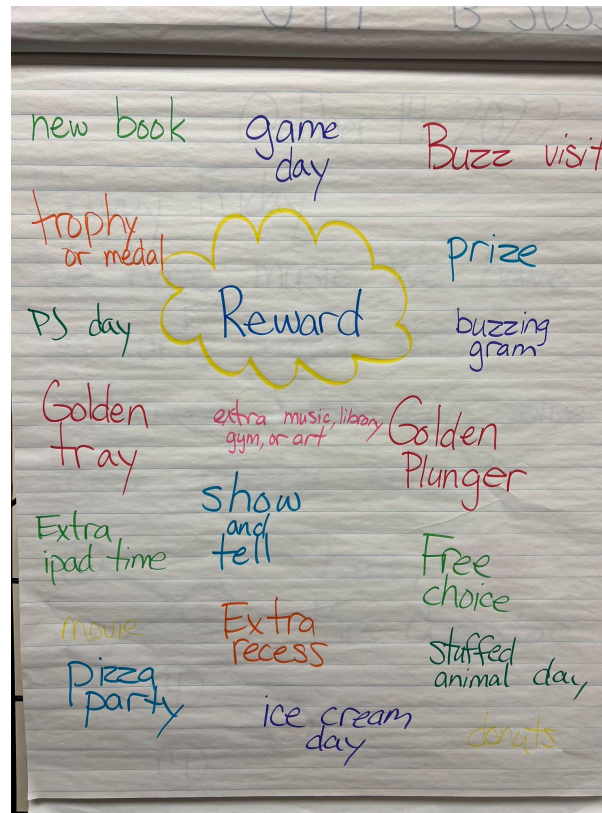 new book
game
day
Buzz visit
trophy
or medal
prize
Reward
PJ day
buzzing
gram
Golden
tray
extra music, library
gym, or art
Golden
Plunger
show
and
tell
Extra
ipad time
Free
choice
movie
Extra
recess
stuffed
animal day
pizza
party
ice cream
day
donuts